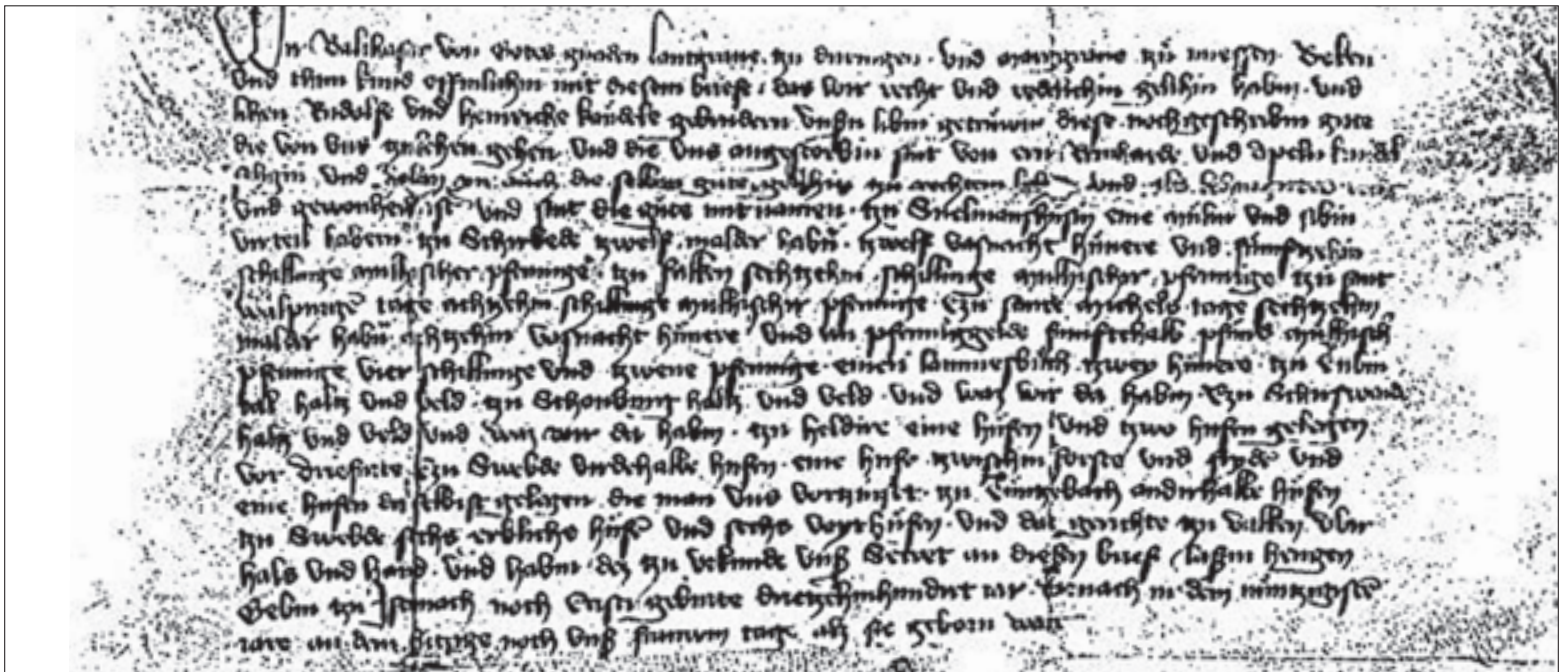 Wir Balthasar von Gotes gnaden Lantgraue tzu duringen und Marcgraue tzu miessen Beken
und thun kund offinlichin mit diesem briefe das wir recht und redelichin gelihin habin und
lihen Rudolfe und heinriche keudele gebrudern unßn libin getruwin diese nochgeschribin gute
die von uns zculehen gehen und die uns angestorbin sint von ern Reinharde und Apeln keudel
und habin en ouch die selben gute gelihin zu rechtem
und gewonheit ist und sint die gute mit namen tzu Snelmanshusin eine mulin und sibin
virteil habern tzu Schirbede zwelf malder habn zwelf vasnacht hunere und funftzehin
schillinge mulhischer pfenninge tzu falken sechtzehin schillinge mulhischir pfenninge tzu sint
walpurge tage achtzehin schillinge mulhischir pfenninge Czu sente Michels tage sechtzehin
malder habn achtzehin vasnacht hunere und an pfenninggelde funftehalb pfund mulhisch
pfenninge vier schillinge und zwene pfenninge einen lammesbuch zwey hunere tzu
holtz und veld tzu Schonburg holtz und veld und waz wir da habin Czu
holtz und veld und waz wir da habin tzu heldire eine hufen und zwo hufen gelegen
vor Czu Swebde virdehalbe hufen eine hufe zwischin forste und und
eine hufen da selbist gelegen die man uns vortzinzit tzu andirhalbe hufen
tzu Swebde sechs erbliche hufe und sechs und daz gerichte tzu valken ubir
hals und hand und habin des tzu urkunde unß Secret an diesen brief laßin hengen
Gebin tzu Isenach noch Cristi geburte dretzehinhundirt iar darnach in dem nuntzigisten
iare an dem fritage noch unß frauwin tage alz sie geborn wart